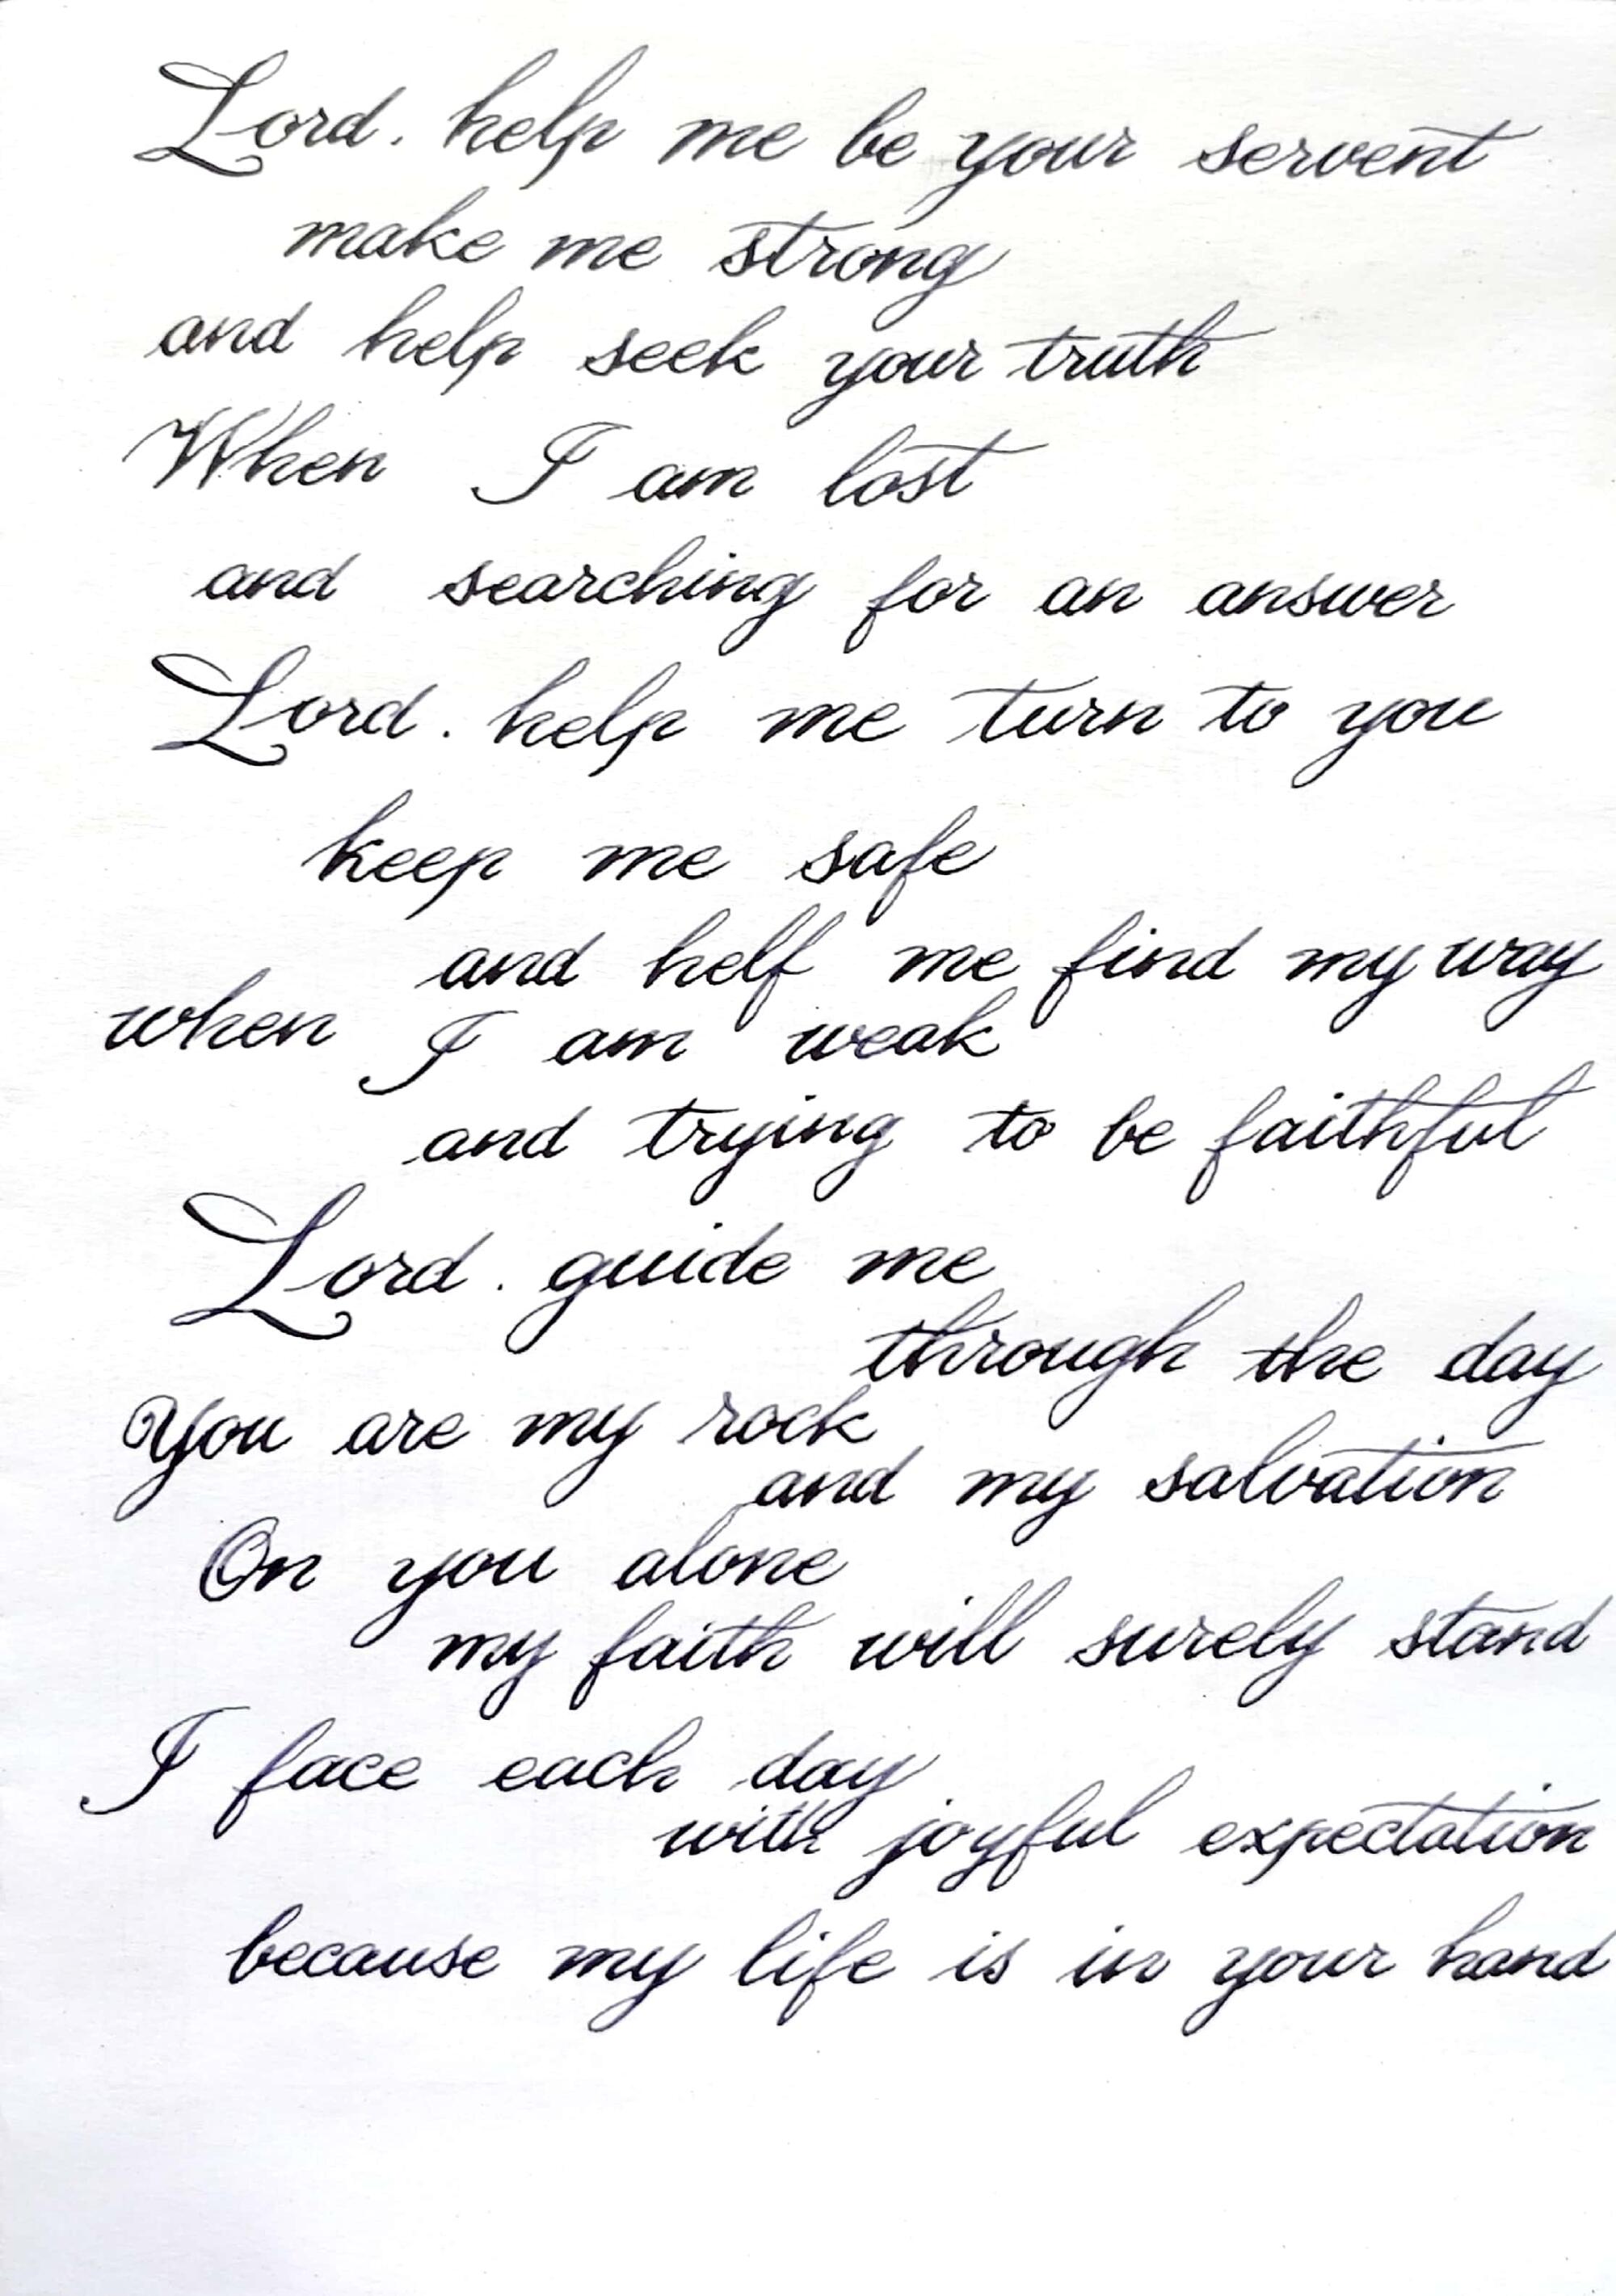 Lord. help me be your servent
make me strong
and help seek your truth
When I am lost
and searching for an answer
Lord. help me turn to you
keep me safe
and helf me find my way
when I am weak
and trying to be faithful
Lord. guide me
through the day
You are my rock
and my salvation
On you alone
my faith will surely stand
I face each day
with joyful expectation
because my life is in your hand